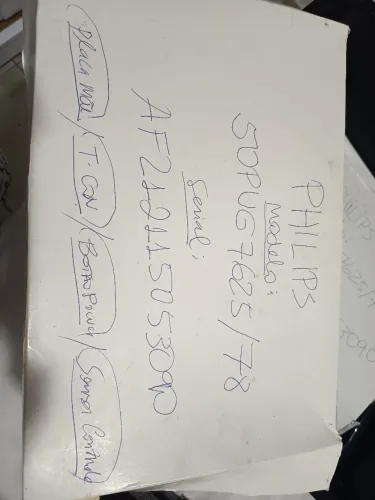 PHILIPS
Modelo:
50PUG7625/78
Serial:
AF2A2115053090
Placa Mãe / T.CON / Botão Power / Sensor Controle